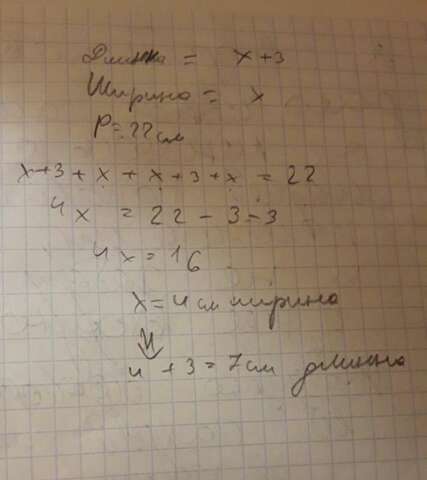 Длинна = x+3
Ширина = x
P=22см
x+3+x+x+3+x = 22
4x = 22-3-3
4x=16
x=4см ширина
4+3=7см длинна